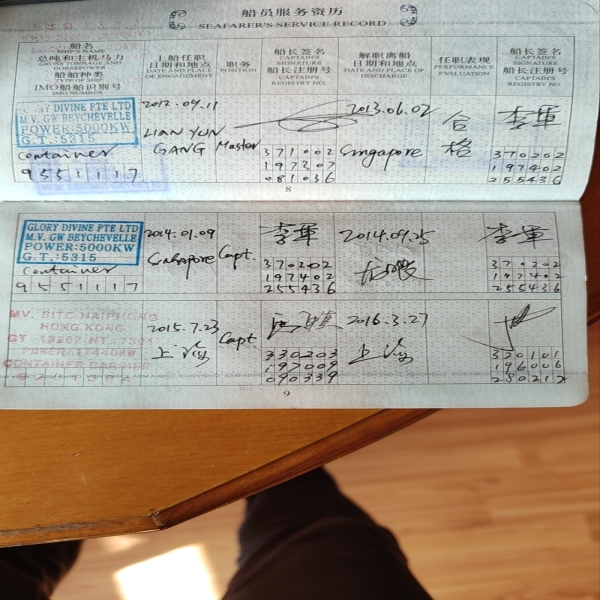 船员服务资历
SEAFARER'S SERVICE RECORD
船名
SHIP'S NAME
总吨和主机马力
GROSS TONNAGE AND
HORSEPOWER
船舶种类
TYPE OF SHIP
IMO船舶识别号
IMO NUMBER
上船任职
日期和地点
DATE AND PLACE
OF ENGAGEMENT
职务
POSITION
船长签名
CAPTAIN'S
SIGNATURE
船长注册号
CAPTAIN'S
REGISTRY NO.
解职离船
日期和地点
DATE AND PLACE OF
DISCHARGE
任职表现
PERFORMANCE
EVALUATION
船长签名
CAPTAIN'S
SIGNATURE
船长注册号
CAPTAIN'S
REGISTRY NO.
GLORY DIVINE PTE LTD
M.V. GW BEYCHEVELLE
POWER:5000KW
G.T.:5315
Container
9551117
2012.09.11
LIAN YUN
GANG
Master
371002
197207
081036
2013.06.02
Singapore
合
格
李軍
370202
197402
255436
8
GLORY DIVINE PTE LTD
M.V. GW BEYCHEVELLE
POWER:5000KW
G.T.:5315
Container
9551117
2014.01.09
Singapore
Capt.
李軍
370202
197402
255436
2014.09.25
李軍
370202
197402
255436
MV. SITC HAIPHONG
HONG KONG
CONTAINER CARRIER
2015.7.23
上海
Capt.
330203
197009
090339
2016.3.27
上海
320101
196006
280217
9